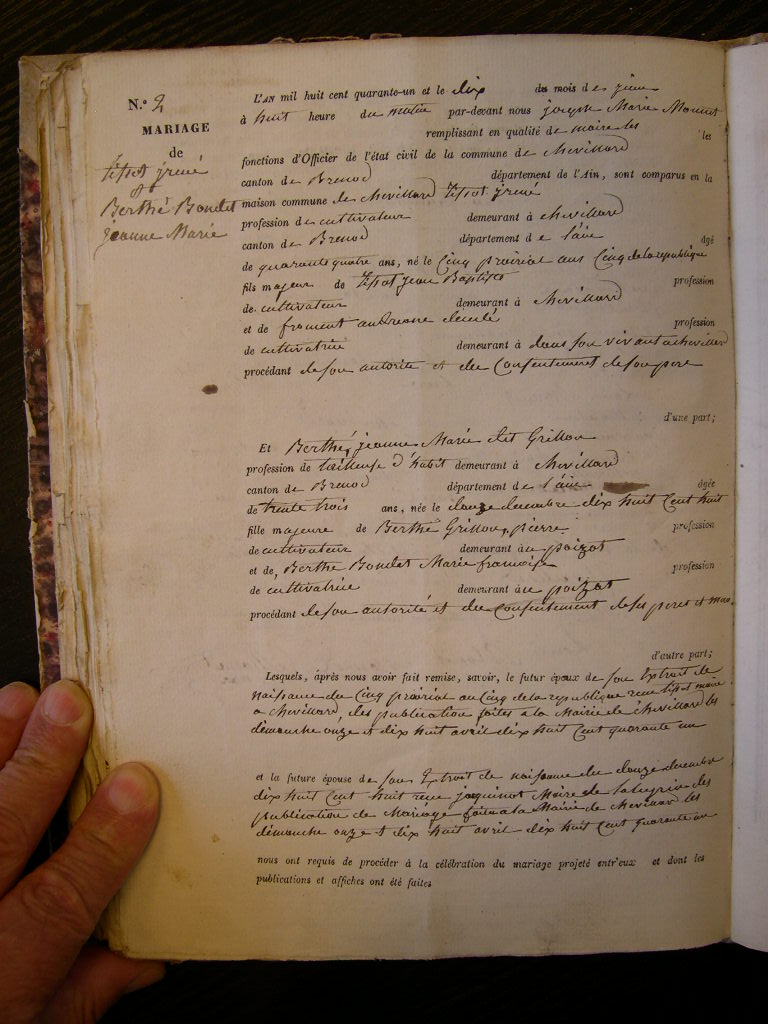 N.° 2
MARIAGE
de
tissot jrené
et
Berthé Bondet
jeanne Marie
L'AN mil huit cent quarante-un et le dix du mois de juin
à huit heure du matin par-devant nous joseph Marie Monnet
remplissant en qualité de maire les les
fonctions d'Officier de l'état civil de la commune de chevillard
canton de Brenod département de l'Ain, sont comparus en la
maison commune de chevillard tissot jrené
profession de cultivateur demeurant à chevillard
canton de Brenod département de l'ain âgé
de quarante quatre ans, né le Cinq prairial ans Cinq de la republique
fils majeur de tissot jean Baptiste profession
de cultivateur demeurant à chevillard
et de froment profession
de cultivatrice demeurant à dans son vivant a chevillard
procédant de son autorité et du Consentement de son pere
d'une part;
Et Berthé, jeanne Marie dit Grillon
profession de tailleuse d'habit demeurant à chevillard
canton de Brenod département de l'ain âgée
de trente trois ans, née le douze decembre dix huit Cent huit
fille majeure de Berthé Grillon, pierre profession
de cultivateur demeurant à u poizat
et de, Berthé Bondet Marie francoise profession
de cultivatrice demeurant à u poizat
procédant de son autorité et du Consentement de ses peres et mere
d'autre part;
Lesquels, après nous avoir fait remise, savoir, le futur époux de son Extrait de
naissance du Cinq prairial au Cinq de la republique recu tissot maire
a chevillard, des publication faites a la Mairie de chevillard les
dimanche onze et dix huit avril dix huit Cent quarante un
et la future épouse de son Extrait de naissance du douze decembre
dix huit Cent huit recu jacquinot Maire de lalleyriat des
publication de Mariage faites a la Mairie de chevillard les
dimanche onze et dix huit avril dix huit Cent quarante un
nous ont requis de procéder à la célébration du mariage projeté entr'eux et dont les
publications et affiches ont été faites